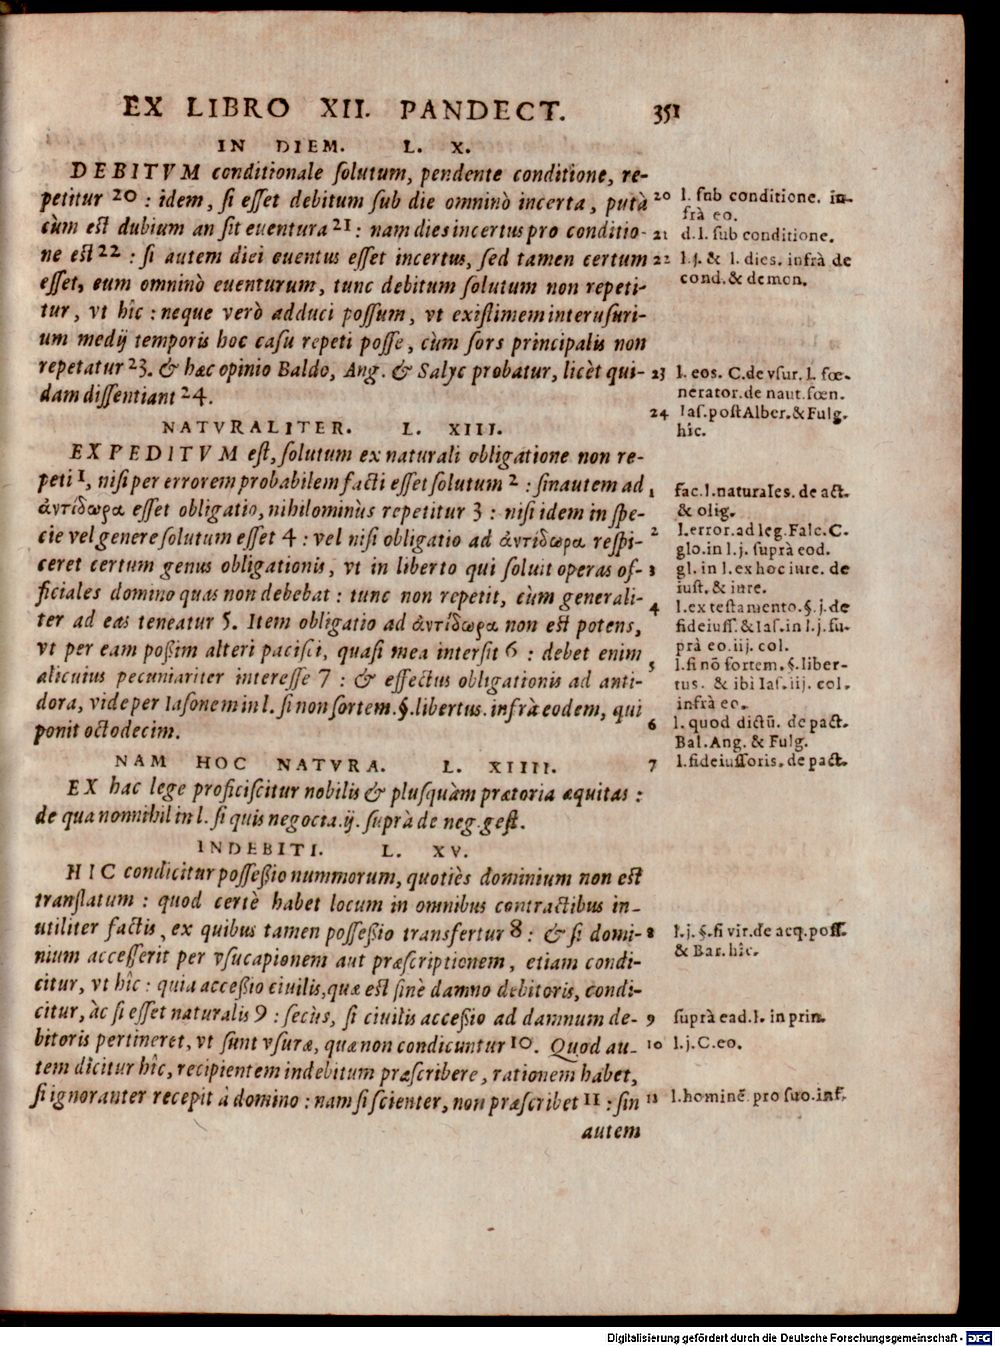 EX LIBRO XII. PANDECT. 351
IN DIEM. L. X.
DEBITVM conditionale ſolutum, pendente conditione, re-
petitur 20 : idem, ſi eſſet debitum ſub die omninò incerta, putà
cùm eſt dubium an ſit euentura 21 : nam dies incertus pro conditio-
ne eſt 22 : ſi autem diei euentus eſſet incertus, ſed tamen certum
eſſet, eum omninò euenturum, tunc debitum ſolutum non repeti-
tur, vt hîc : neque verò adduci poſſum, vt exiſtimem interuſuri-
um medij temporis hoc caſu repeti poſſe, cùm ſors principalis non
repetatur 23. & hæc opinio Baldo, Ang. & Salyc probatur, licèt qui-
dam diſſentiant 24.
NATVRALITER. L. XIII.
EXPEDITVM eſt, ſolutum ex naturali obligatione non re-
peti 1, niſi per errorem probabilem facti eſſet ſolutum 2 : ſin autem ad
ἀντίδωρα eſſet obligatio, nihilominùs repetitur 3 : niſi idem in ſpe-
cie vel genere ſolutum eſſet 4 : vel niſi obligatio ad ἀντίδωρα reſpi-
ceret certum genus obligationis, vt in liberto qui ſoluit operas of-
ficiales domino quas non debebat : tunc non repetit, cùm generali-
ter ad eas teneatur 5. Item obligatio ad ἀντίδωρα non eſt potens,
vt per eam poßim alteri paciſci, quaſi mea interſit 6 : debet enim
alicuius pecuniariter intereſſe 7 : & effectus obligationis ad anti-
dora, vide per Iaſonem in l. ſi non ſortem. §. libertus. infrà eodem, qui
ponit octodecim.
NAM HOC NATVRA. L. XIIII.
EX hac lege proficiſcitur nobilis & pluſquàm prætoria æquitas :
de qua nonnihil in l. ſi quis negocta. ij. ſuprà de neg. geſt.
INDEBITI. L. XV.
HIC condicitur poſſeßio nummorum, quotiès dominium non eſt
tranſlatum : quod certè habet locum in omnibus contractibus in-
utiliter factis, ex quibus tamen poſſeßio transfertur 8 : & ſi domi-
nium acceſſerit per vſucapionem aut præſcriptionem, etiam condi-
citur, vt hîc : quia acceßio ciuilis, quæ eſt ſinè damno debitoris, condi-
citur, àc ſi eſſet naturalis 9 : ſecùs, ſi ciuilis acceßio ad damnum de-
bitoris pertineret, vt ſunt vſuræ, quæ non condicuntur 10. Quod au-
tem dicitur hîc, recipientem indebitum præſcribere, rationem habet,
ſi ignoranter recepit à domino : nam ſi ſcienter, non præſcribet 11 : ſin
autem
20 l. ſub conditione. in-
frà eo.
21 d. l. ſub conditione.
22 l. j. & l. dies. infrà de
cond. & demon.
23 l. eos. C. de vſur. l. fœ-
nerator. de naut. fœn.
24 Iaſ. poſt Alber. & Fulg.
hîc.
1 fac. l. naturales. de act.
& olig.
2 l. error. ad leg. Falc. C.
glo. in l. j. ſuprà eod.
3 gl. in l. ex hoc iure. de
iuſt. & iure.
4 l. ex teſtamento. §. j. de
fideiuſſ. & Iaſ. in l. j. ſu-
prà eo. iij. col.
5 l. ſi nō ſortem. §. liber-
tus. & ibi Iaſ. iij. col.
infrà eo.
6 l. quod dictū. de pact.
Bal. Ang. & Fulg.
7 l. fideiuſſoris. de pact.
8 l. j. §. ſi vir. de acq. poſſ.
& Bar. hîc.
9 ſuprà ead. l. in prin.
10 l. j. C. eo.
11 l. hominē. pro ſuo. inf.
Digitalisierung gefördert durch die Deutsche Forschungsgemeinschaft - DFG